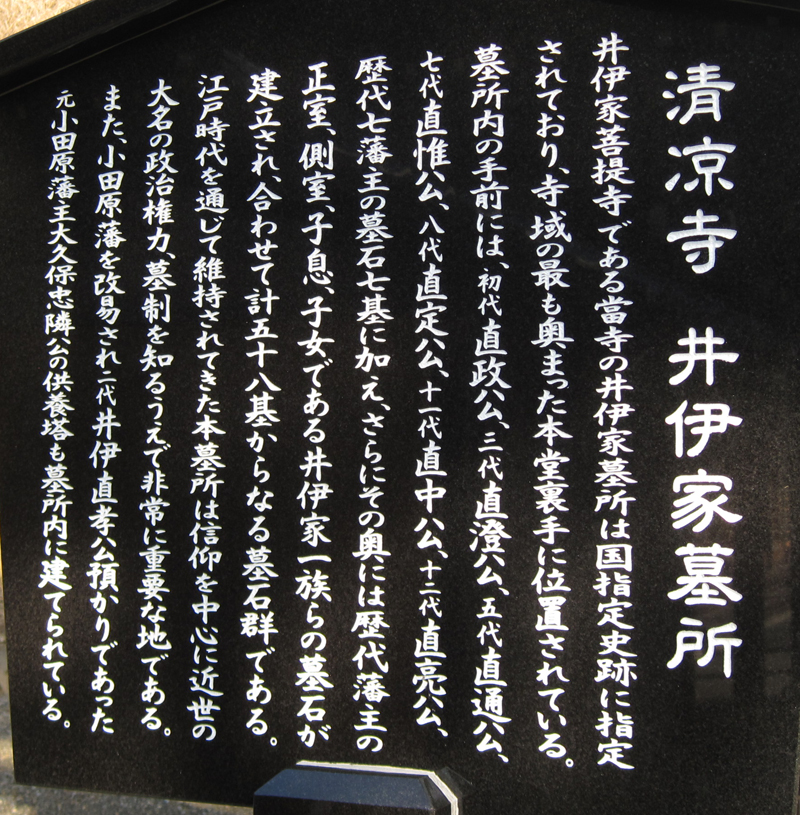 清凉寺 井伊家墓所
井伊家菩提寺である當寺の井伊家墓所は国指定史跡に指定
されており、寺域の最も奥まった本堂裏手に位置されている。
墓所内の手前には、初代直政公、三代直澄公、五代直通公、
七代直惟公、八代直定公、十一代直中公、十二代直亮公、
歴代七藩主の墓石七基に加え、さらにその奥には歴代藩主の
正室、側室、子息、子女である井伊家一族らの墓石が
建立され、合わせて計五十八基からなる墓石群である。
江戸時代を通じて維持されてきた本墓所は信仰を中心に近世の
大名の政治権力、墓制を知るうえで非常に重要な地である。
また、小田原藩を改易され二代井伊直孝公預かりであった
元小田原藩主大久保忠隣公の供養塔も墓所内に建てられている。